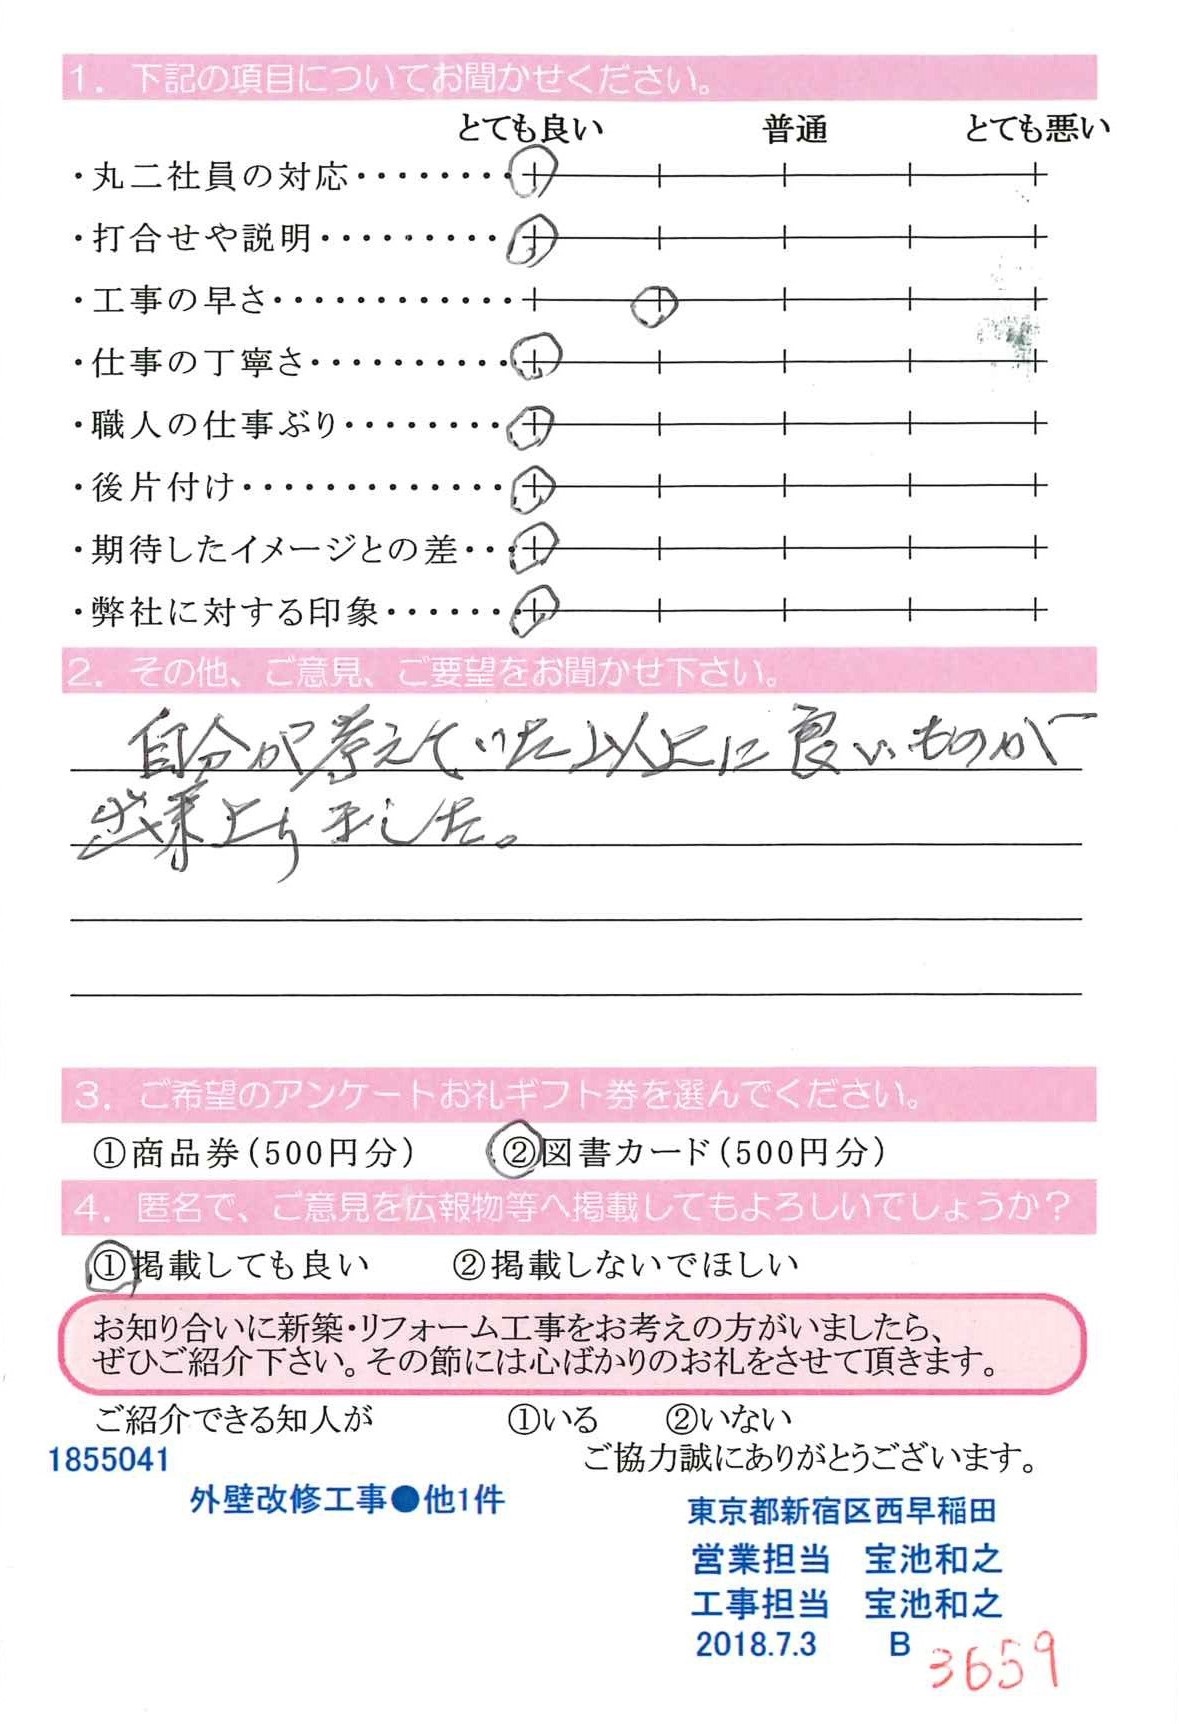 1. 下記の項目についてお聞かせください。
とても良い 普通 とても悪い
・丸二社員の対応・・・・・・・・
・打合せや説明・・・・・・・・・
・工事の早さ・・・・・・・・・・・・・
・仕事の丁寧さ・・・・・・・・・・
・職人の仕事ぶり・・・・・・・・
・後片付け・・・・・・・・・・・・・
・期待したイメージとの差・・・
・弊社に対する印象・・・・・・・
2. その他、ご意見、ご要望をお聞かせ下さい。
自分が考えていた以上に良いものが
出来上りました。
3. ご希望のアンケートお礼ギフト券を選んでください。
①商品券(500円分) ②図書カード(500円分)
4. 匿名で、ご意見を広報物等へ掲載してもよろしいでしょうか?
①掲載しても良い ②掲載しないでほしい
お知り合いに新築・リフォーム工事をお考えの方がいましたら、
ぜひご紹介下さい。その節には心ばかりのお礼をさせて頂きます。
ご紹介できる知人が ①いる ②いない
1855041 ご協力誠にありがとうございます。
外壁改修工事●他1件
東京都新宿区西早稲田
営業担当 宝池和之
工事担当 宝池和之
2018.7.3 B 3659